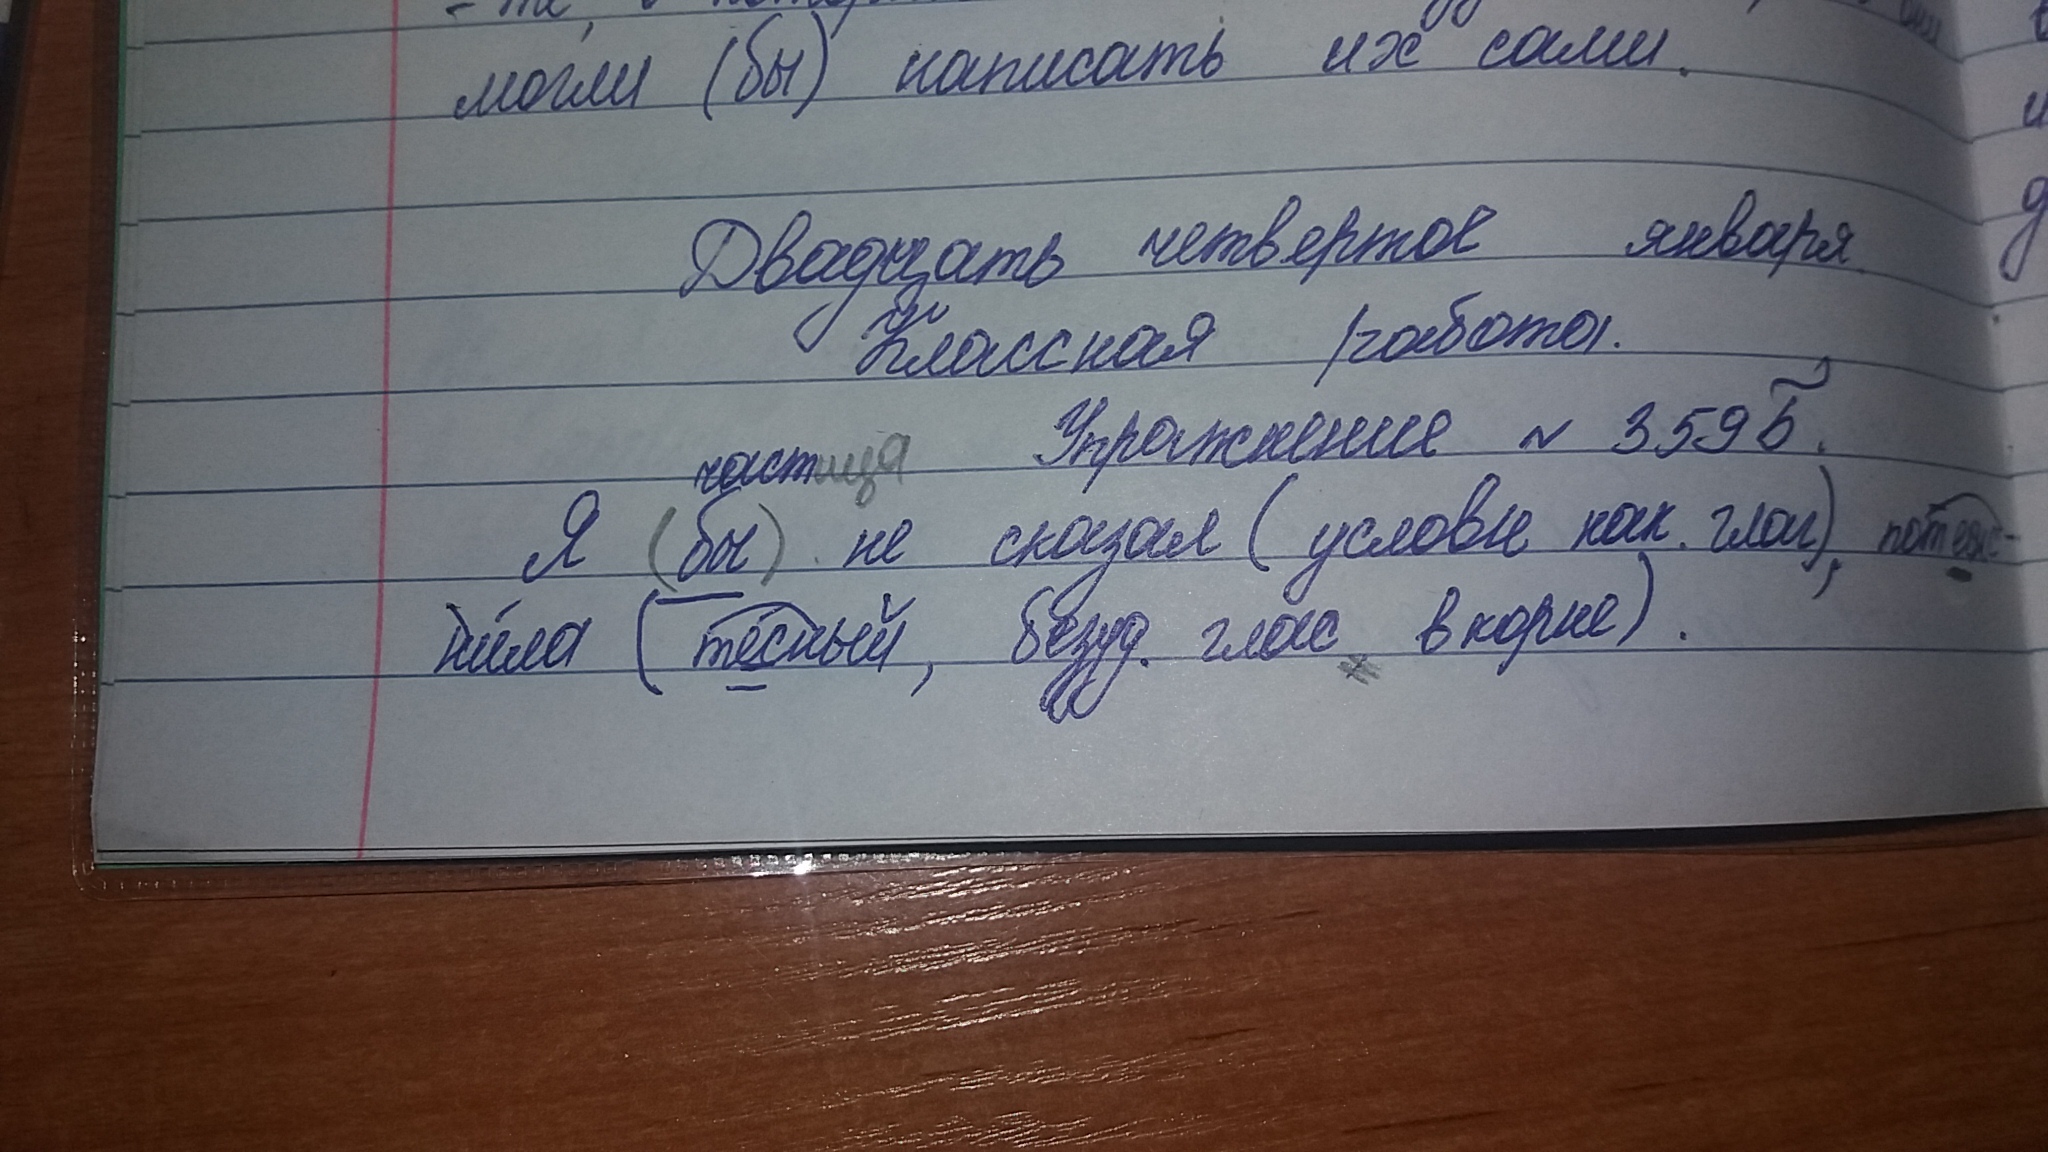 могли (бы) написать их сами.
Двадцать четвертое января.
Классная работа.
Упражнение № 359б.
частица
Я (бы) не сказал (условн нак. глаг), потес-
нила (тесный, безуд. глас в корне).